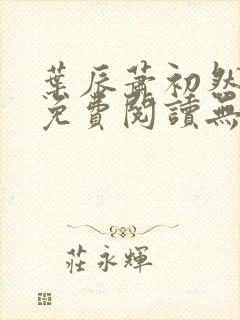 葉辰蕭初然
免費閱讀無
莊永輝